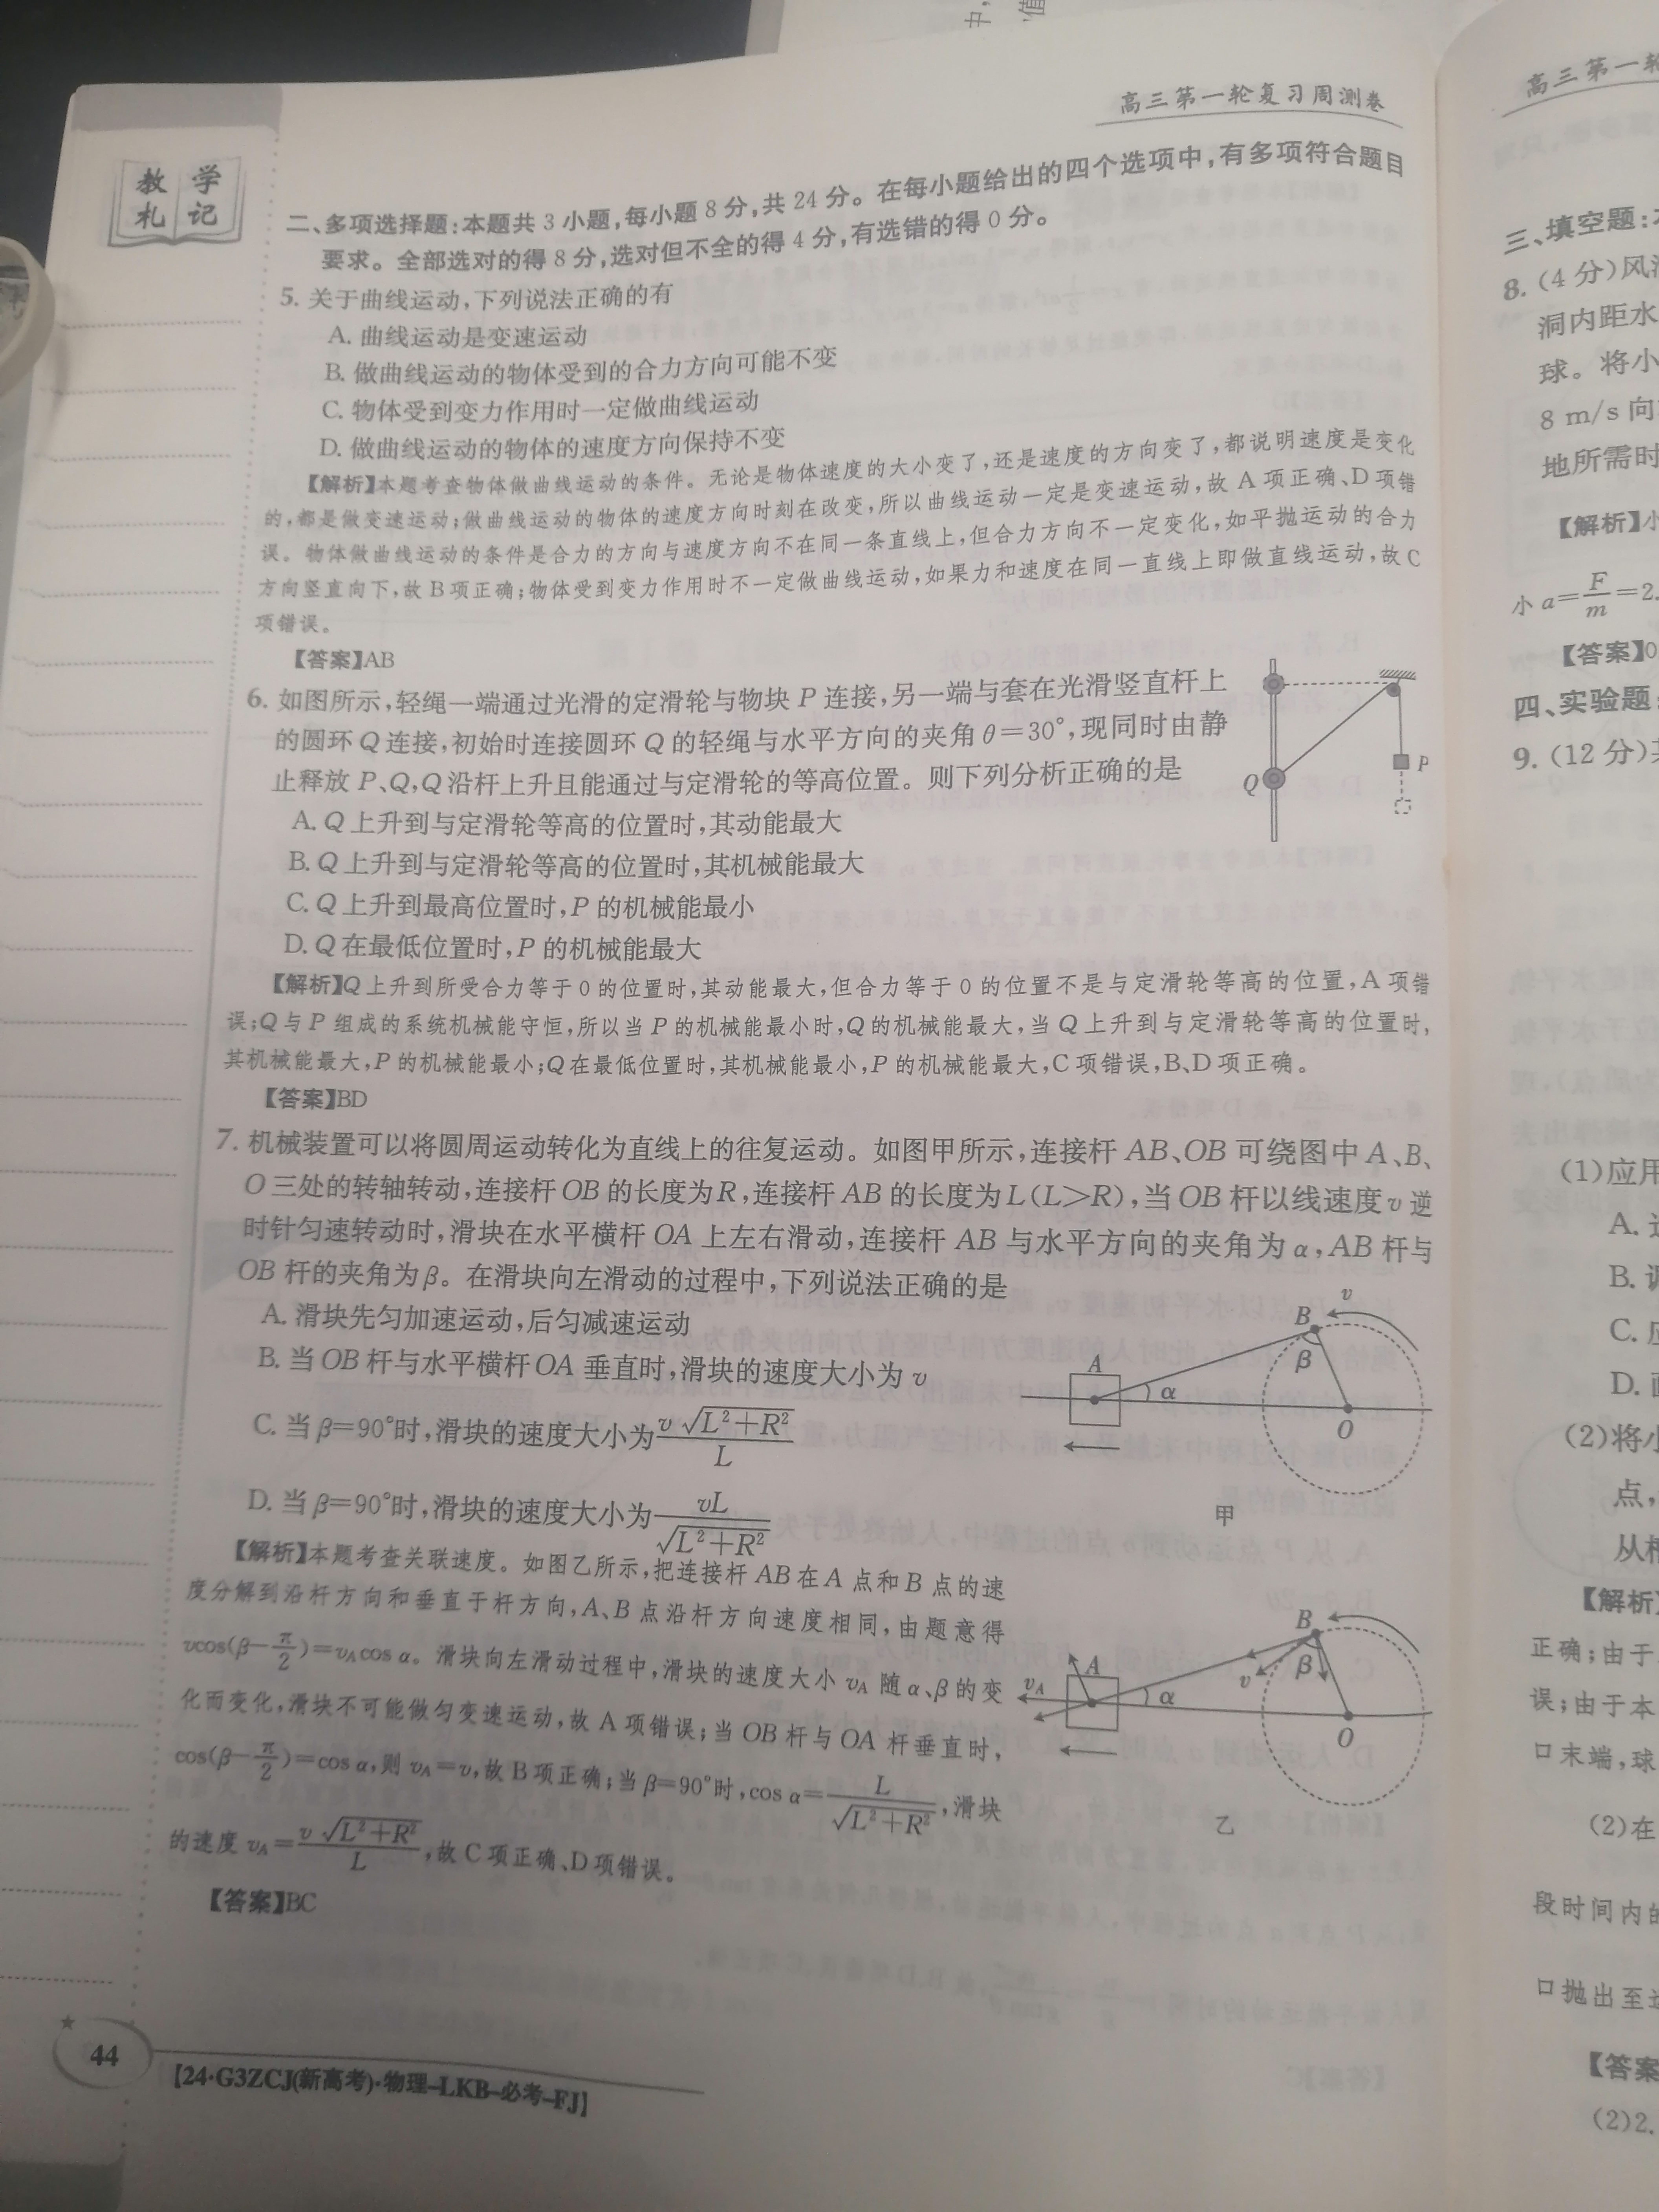 高三第一轮复习周测卷
教学札记
二、多项选择题:本题共3小题,每小题8分,共24分。在每小题给出的四个选项中,有多项符合题目
要求。全部选对的得8分,选对但不全的得4分,有选错的得0分。
5. 关于曲线运动,下列说法正确的有
A. 曲线运动是变速运动
B. 做曲线运动的物体受到的合力方向可能不变
C. 物体受到变力作用时一定做曲线运动
D. 做曲线运动的物体的速度方向保持不变
【解析】本题考查物体做曲线运动的条件。无论是物体速度的大小变了,还是速度的方向变了,都说明速度是变化
的,都是做变速运动;做曲线运动的物体的速度方向时刻在改变,所以曲线运动一定是变速运动,故A项正确、D项错
误。物体做曲线运动的条件是合力的方向与速度方向不在同一条直线上,但合力方向不一定变化,如平抛运动的合力
方向竖直向下,故B项正确;物体受到变力作用时不一定做曲线运动,如果力和速度在同一直线上即做直线运动,故C
项错误。
【答案】AB
6. 如图所示,轻绳一端通过光滑的定滑轮与物块P连接,另一端与套在光滑竖直杆上
的圆环Q连接,初始时连接圆环Q的轻绳与水平方向的夹角θ=30°,现同时由静
止释放P、Q,Q沿杆上升且能通过与定滑轮的等高位置。则下列分析正确的是
Q
P
A. Q上升到与定滑轮等高的位置时,其动能最大
B. Q上升到与定滑轮等高的位置时,其机械能最大
C. Q上升到最高位置时,P的机械能最小
D. Q在最低位置时,P的机械能最大
【解析】Q上升到所受合力等于0的位置时,其动能最大,但合力等于0的位置不是与定滑轮等高的位置,A项错
误;Q与P组成的系统机械能守恒,所以当P的机械能最小时,Q的机械能最大,当Q上升到与定滑轮等高的位置时,
其机械能最大,P的机械能最小;Q在最低位置时,其机械能最小,P的机械能最大,C项错误,B、D项正确。
【答案】BD
7. 机械装置可以将圆周运动转化为直线上的往复运动。如图甲所示,连接杆AB、OB可绕图中A、B、
O三处的转轴转动,连接杆OB的长度为R,连接杆AB的长度为L(L>R),当OB杆以线速度v逆
时针匀速转动时,滑块在水平横杆OA上左右滑动,连接杆AB与水平方向的夹角为α,AB杆与
OB杆的夹角为β。在滑块向左滑动的过程中,下列说法正确的是
A. 滑块先匀加速运动,后匀减速运动
B. 当OB杆与水平横杆OA垂直时,滑块的速度大小为v
C. 当β=90°时,滑块的速度大小为v√(L²+R²)/L
D. 当β=90°时,滑块的速度大小为vL/√(L²+R²)
A
B
v
α
β
O
甲
【解析】本题考查关联速度。如图乙所示,把连接杆AB在A点和B点的速
度分解到沿杆方向和垂直于杆方向,A、B点沿杆方向速度相同,由题意得
vcos(β-π/2)=v_A cos α。滑块向左滑动过程中,滑块的速度大小v_A随α、β的变
化而变化,滑块不可能做匀变速运动,故A项错误;当OB杆与OA杆垂直时,
cos(β-π/2)=cos α,则v_A=v,故B项正确;当β=90°时,cos α=L/√(L²+R²),滑块
的速度v_A=v√(L²+R²)/L,故C项正确、D项错误。
【答案】BC
v_A
A
B
v
α
β
O
乙
44
【24·G3ZCJ(新高考)·物理-LKB-必考-FJ】
高三第一轮
三、填空题:
8. (4分)风
洞内距水
球。将小
8 m/s向
地所需时
【解析】小
小a=F/m=2.
【答案】0
四、实验题
9. (12分)
(1)应用
A.
B.
C.
D.
(2)将小
点,
从
【解析】
正确;由于
误;由于本
口末端,球
(2)在
段时间内的
口抛出至
【答案
(2)2.